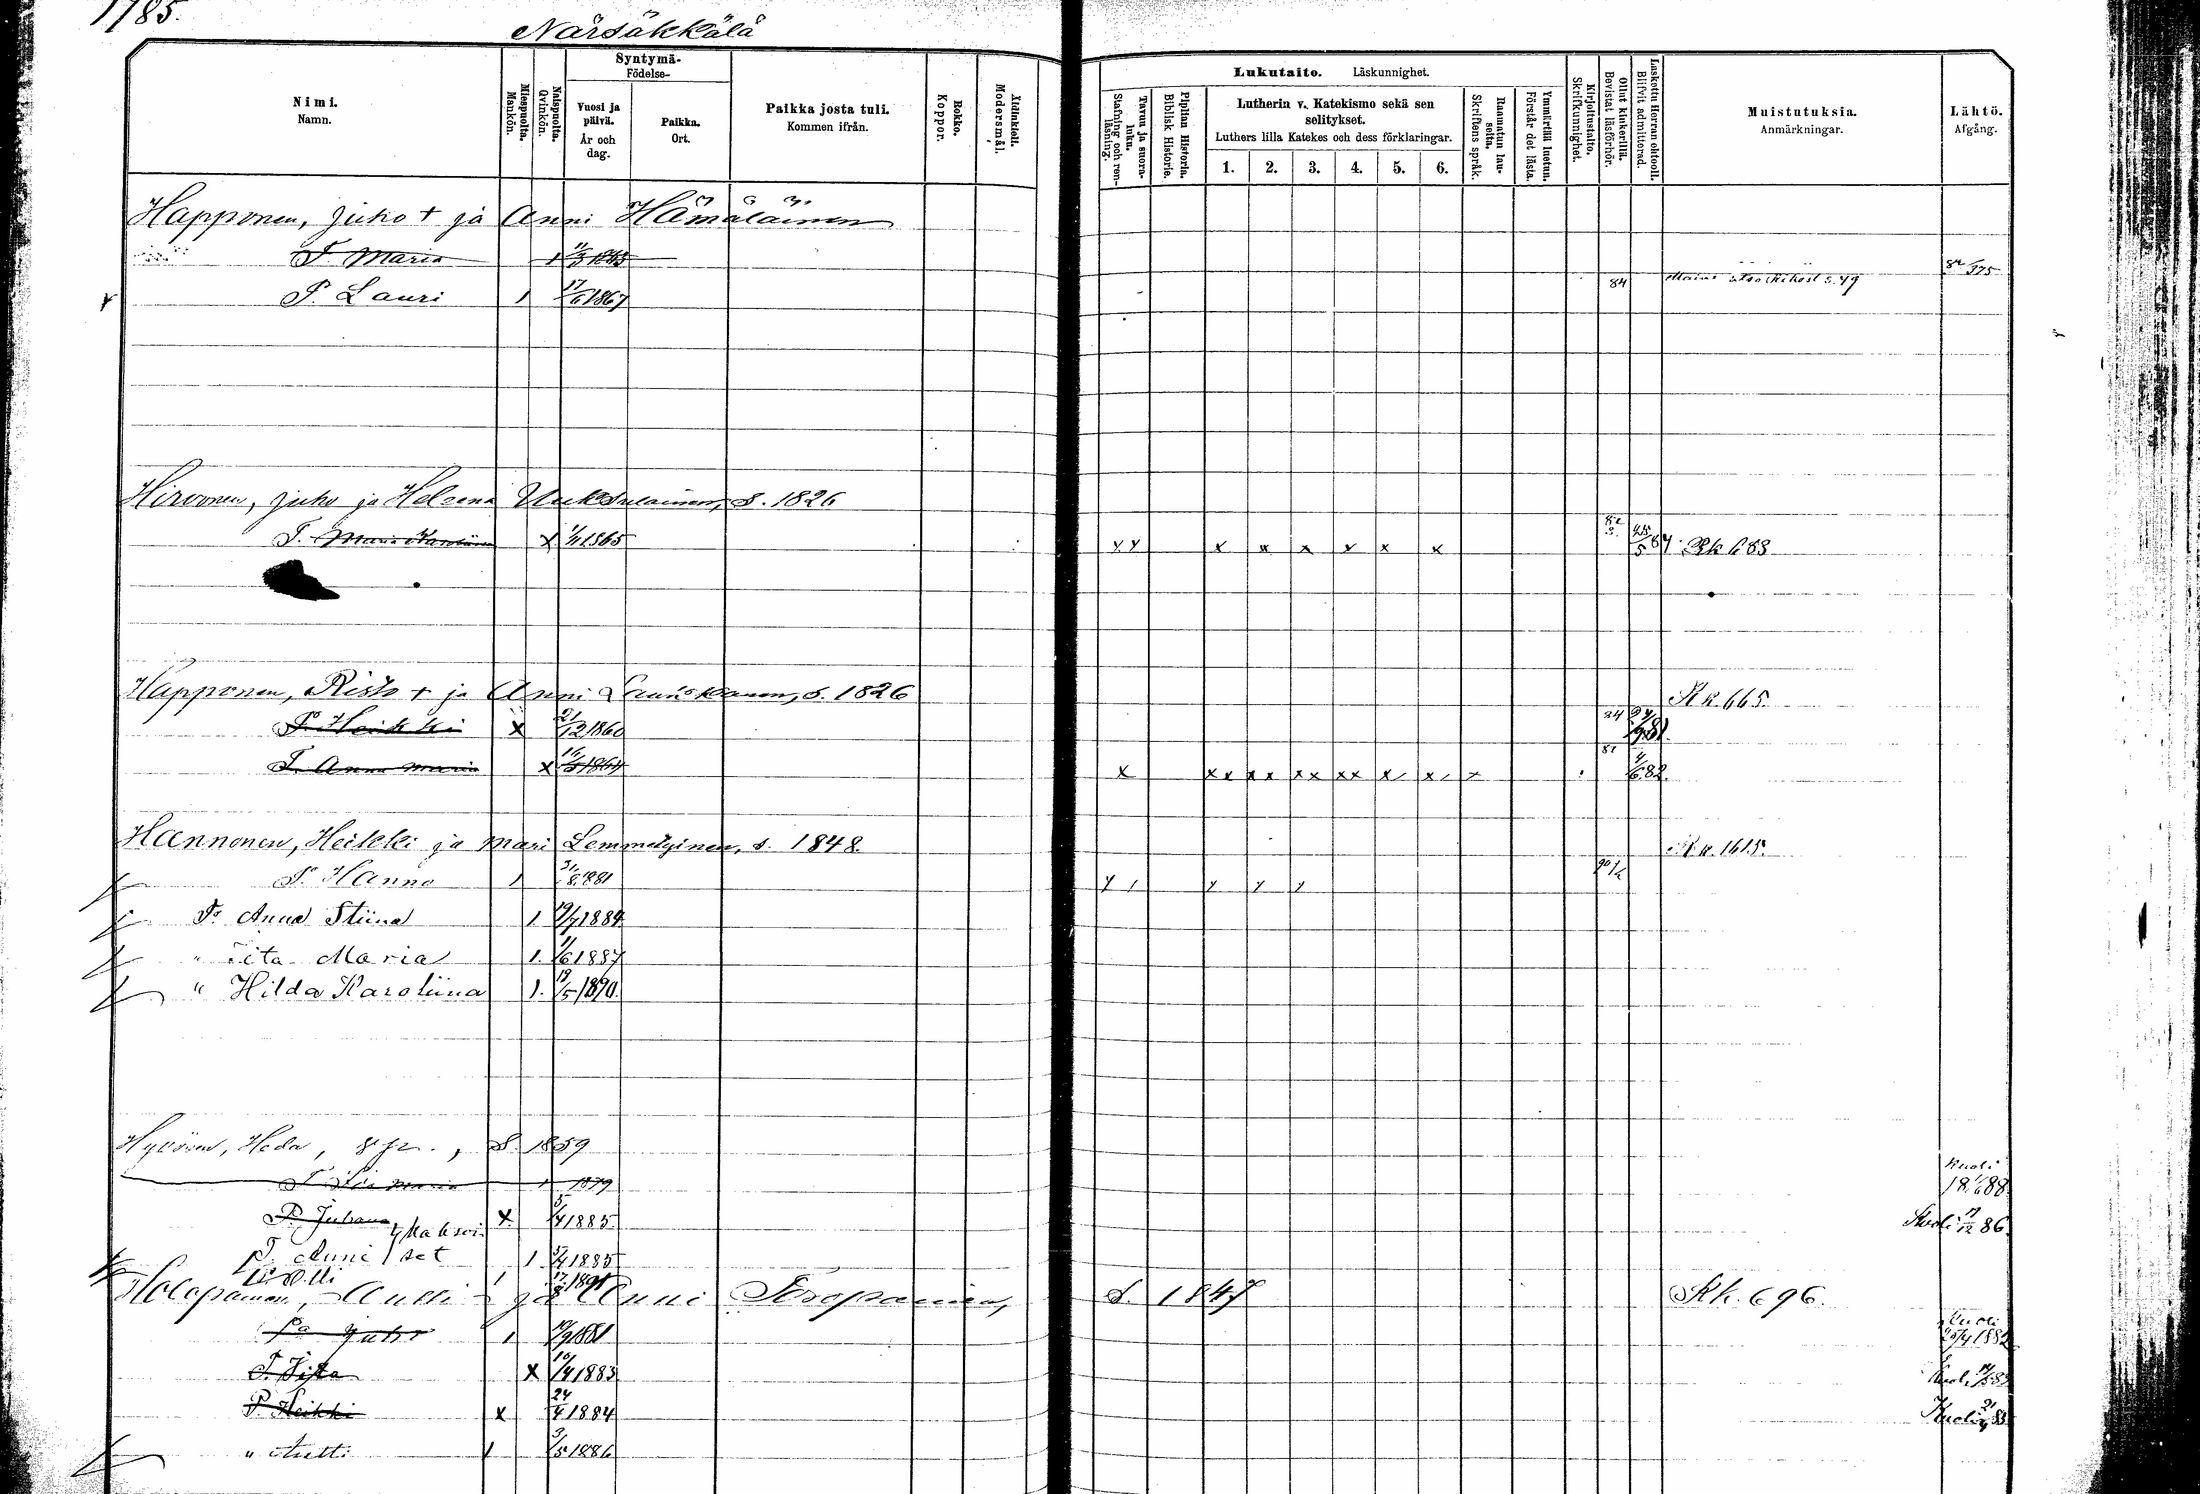 1785.
Närsäkkälä
Nimi.
Namn.
Miespuolta.
Mankön.
Naispuolta.
Qvinkön.
Syntymä-
Födelse-
Vuosi ja päivä.
År och dag.
Paikka.
Ort.
Paikka josta tuli.
Kommen ifrån.
Rokko.
Koppor.
Äidinkieli.
Modersmål.
Lukutaito. Läskunnighet.
Tavuu ja suora-luku.
Stafning och ren-läsning.
Piplian Historia.
Biblisk Historie.
Lutherin v. Katekismo sekä sen selitykset.
Luthers lilla Katekes och dess förklaringar.
1. 2. 3. 4. 5. 6.
Raamatun lau-seita.
Skriftens språk.
Ymmärtää luetun.
Förstår det lästa.
Kirjoitustaito.
Skrifkunnighet.
Ollut kinkerillä.
Bevistat läsförhör.
Laskettu Herran ehtooll.
Blifvit admitterad.
Muistutuksia.
Anmärkningar.
Lähtö.
Afgång.
Happonen, Juho + ja Anni Hämäläinen
T. Maria 1 1845 82/375
P. Lauri 1 17/6 1867 84 s. 49
Hirvonen, Juho ja Helena Uuksulainen, s. 1826
T. Maria Karoliina x 1/11 1865 x x x x x x 25/5 87 Rk 683
Happonen, Risto + ja Anni s. 1826 Rk. 665.
P. Heikki x 21/12 1860 84 24/9 81.
T. Anna Maria x 16/5 1864 x xx xx xx xx x x 81 4/6 82.
Hannonen, Heikki ja Mari Lemmetyinen, s. 1848. Rk. 1615.
P. Hanno 1 31/8 1881 90
T. Anna Stiina 1. 19/7 1884
" Iita Maria 1. 1/6 1887
" Hilda Karoliina 1. 19/5 1890.
Hyvönen, Heda, s. 1859
T. Iia Maria 1 1879 Kuoli 18/6 88
P. Juhana x 5/4 1885 Kuoli 17/12 86
T. Anni kaksoiset 1. 5/4 1885
P. Olli 1 17/8 1891
Holopainen, Antti ja Anni Toropainen, s. 1847 Rk. 696.
P. Juho 1 19/9 1881 Kuoli 20/4 1882
T. Iita x 10/4 1883 Kuoli
P. Heikki x 24/4 1884 Kuoli
" Antti 1 3/5 1886